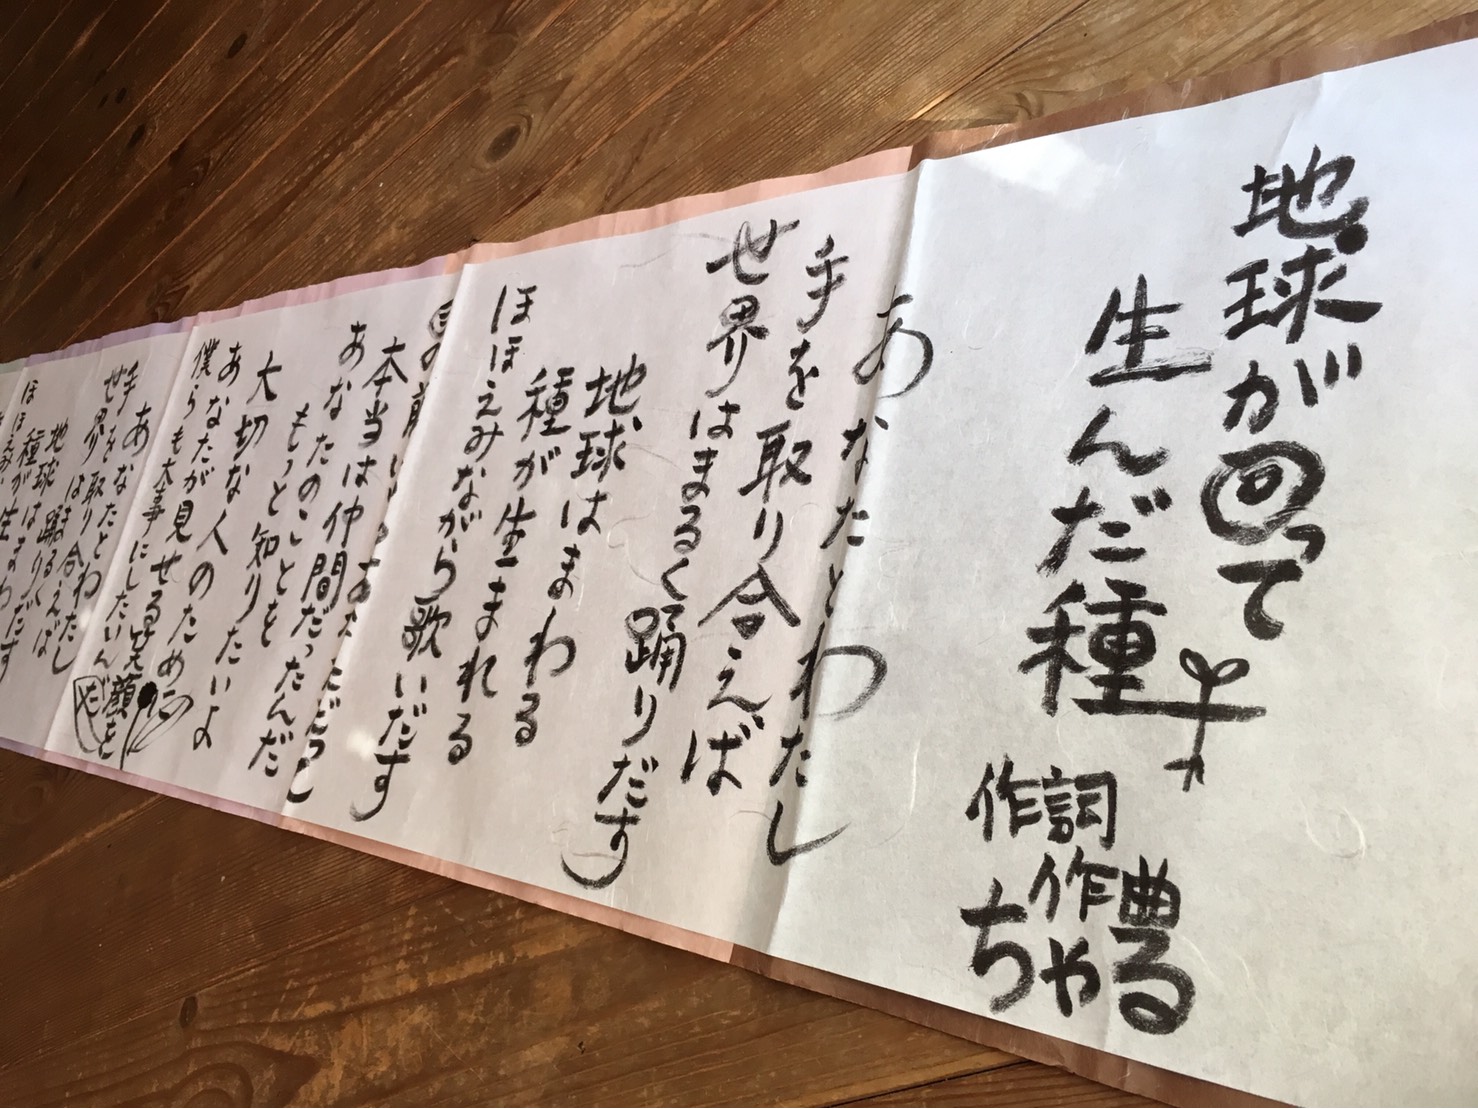 地球が回って
生んだ種
作詞
作曲
ちゃる
あなたとわたし
手を取り合えば
世界はまるく踊りだす
地球はまわる
種が生まれる
ほほえみながら歌いだす
目の前にいるあなただって
本当は仲間だったんだ
あなたのことを
もっと知りたいよ
大切な人のため
あなたが見せる笑顔を
僕らも大事にしたいんだ
あなたとわたし
手を取り合えば
世界はまるく踊りだす
地球はまわ
種が生
ほほえ